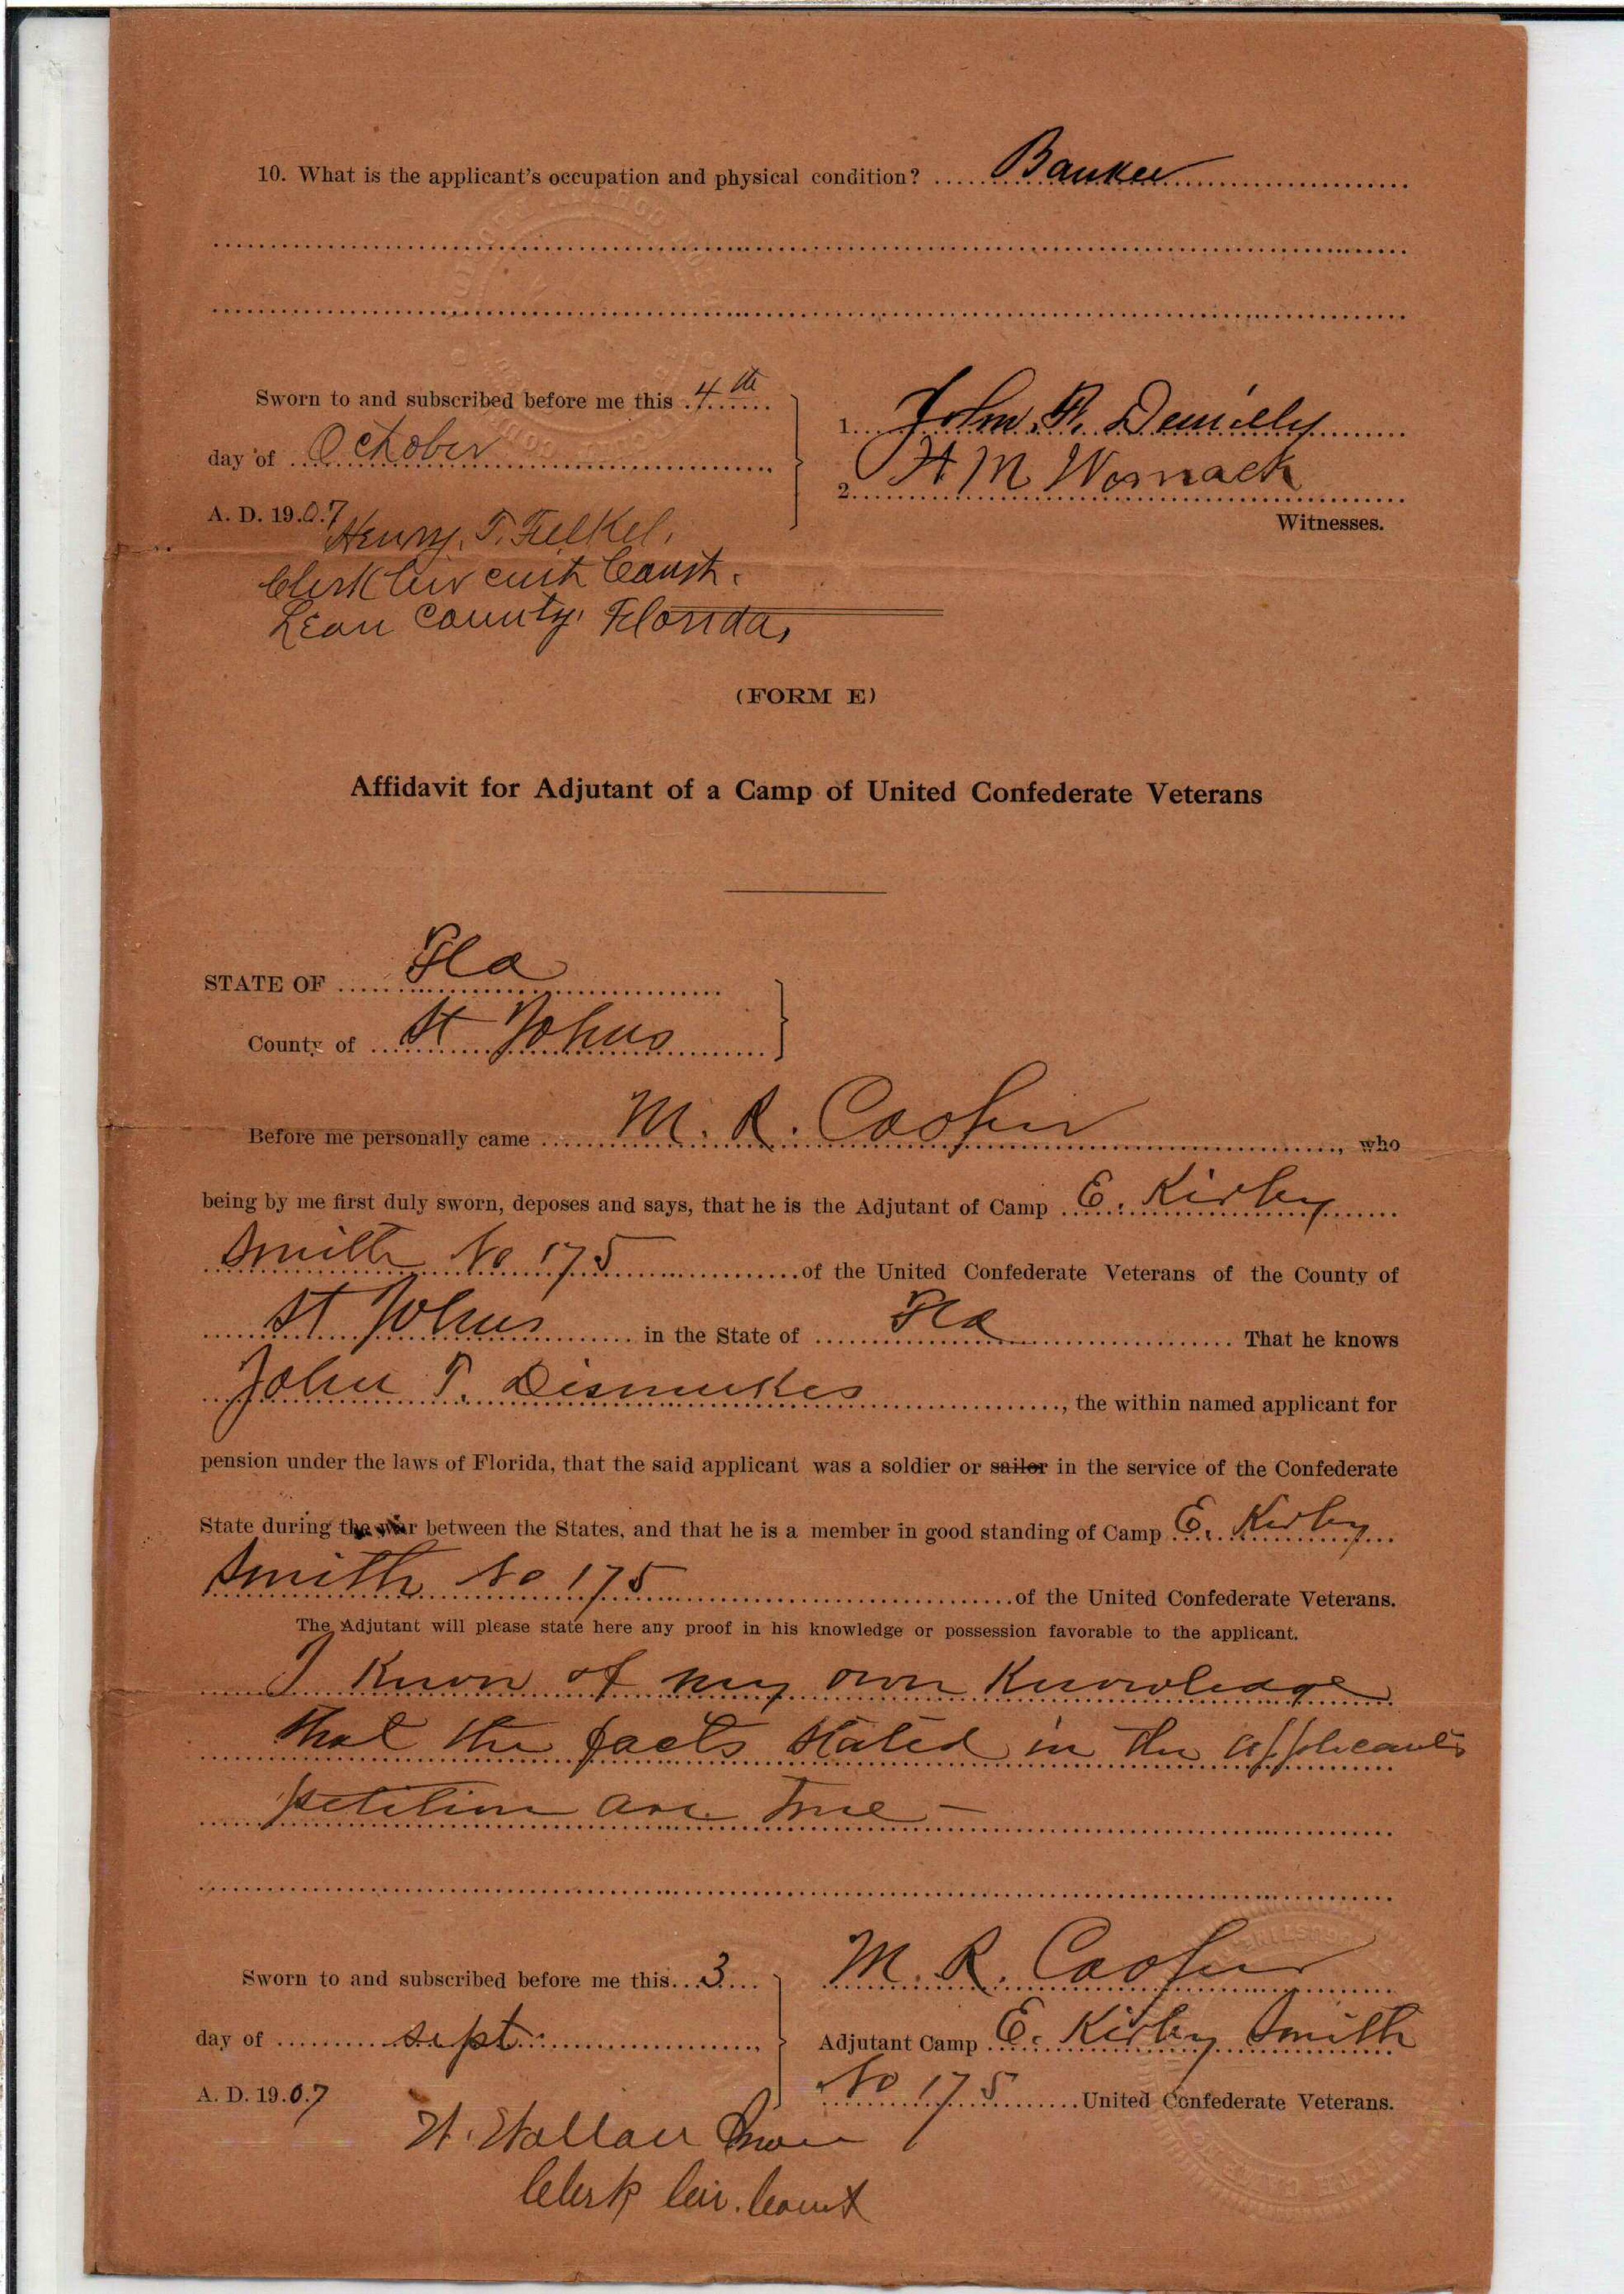 10. What is the applicant's occupation and physical condition? Banker
Sworn to and subscribed before me this 4th
day of October
A. D. 1907
1. John
2. H M Womack
Witnesses.
Henry T. Felkel,
Clerk Circuit Court.
Leon County, Florida,
(FORM E)
Affidavit for Adjutant of a Camp of United Confederate Veterans
STATE OF Fla
County of St Johns
Before me personally came M. R. Cooper, who
being by me first duly sworn, deposes and says, that he is the Adjutant of Camp E. Kirby
Smith No 175 of the United Confederate Veterans of the County of
St Johns in the State of Fla That he knows
John T. Dismukes, the within named applicant for
pension under the laws of Florida, that the said applicant was a soldier or sailor in the service of the Confederate
State during the war between the States, and that he is a member in good standing of Camp E. Kirby
Smith No 175 of the United Confederate Veterans.
The Adjutant will please state here any proof in his knowledge or possession favorable to the applicant.
I know of my own knowledge
that the facts stated in the applicants
petition are true —
Sworn to and subscribed before me this 3
day of sept.
A. D. 1907
M. R. Cooper
Adjutant Camp E. Kirby Smith
No 175 United Confederate Veterans.
Wallace
Clerk Cir. Court